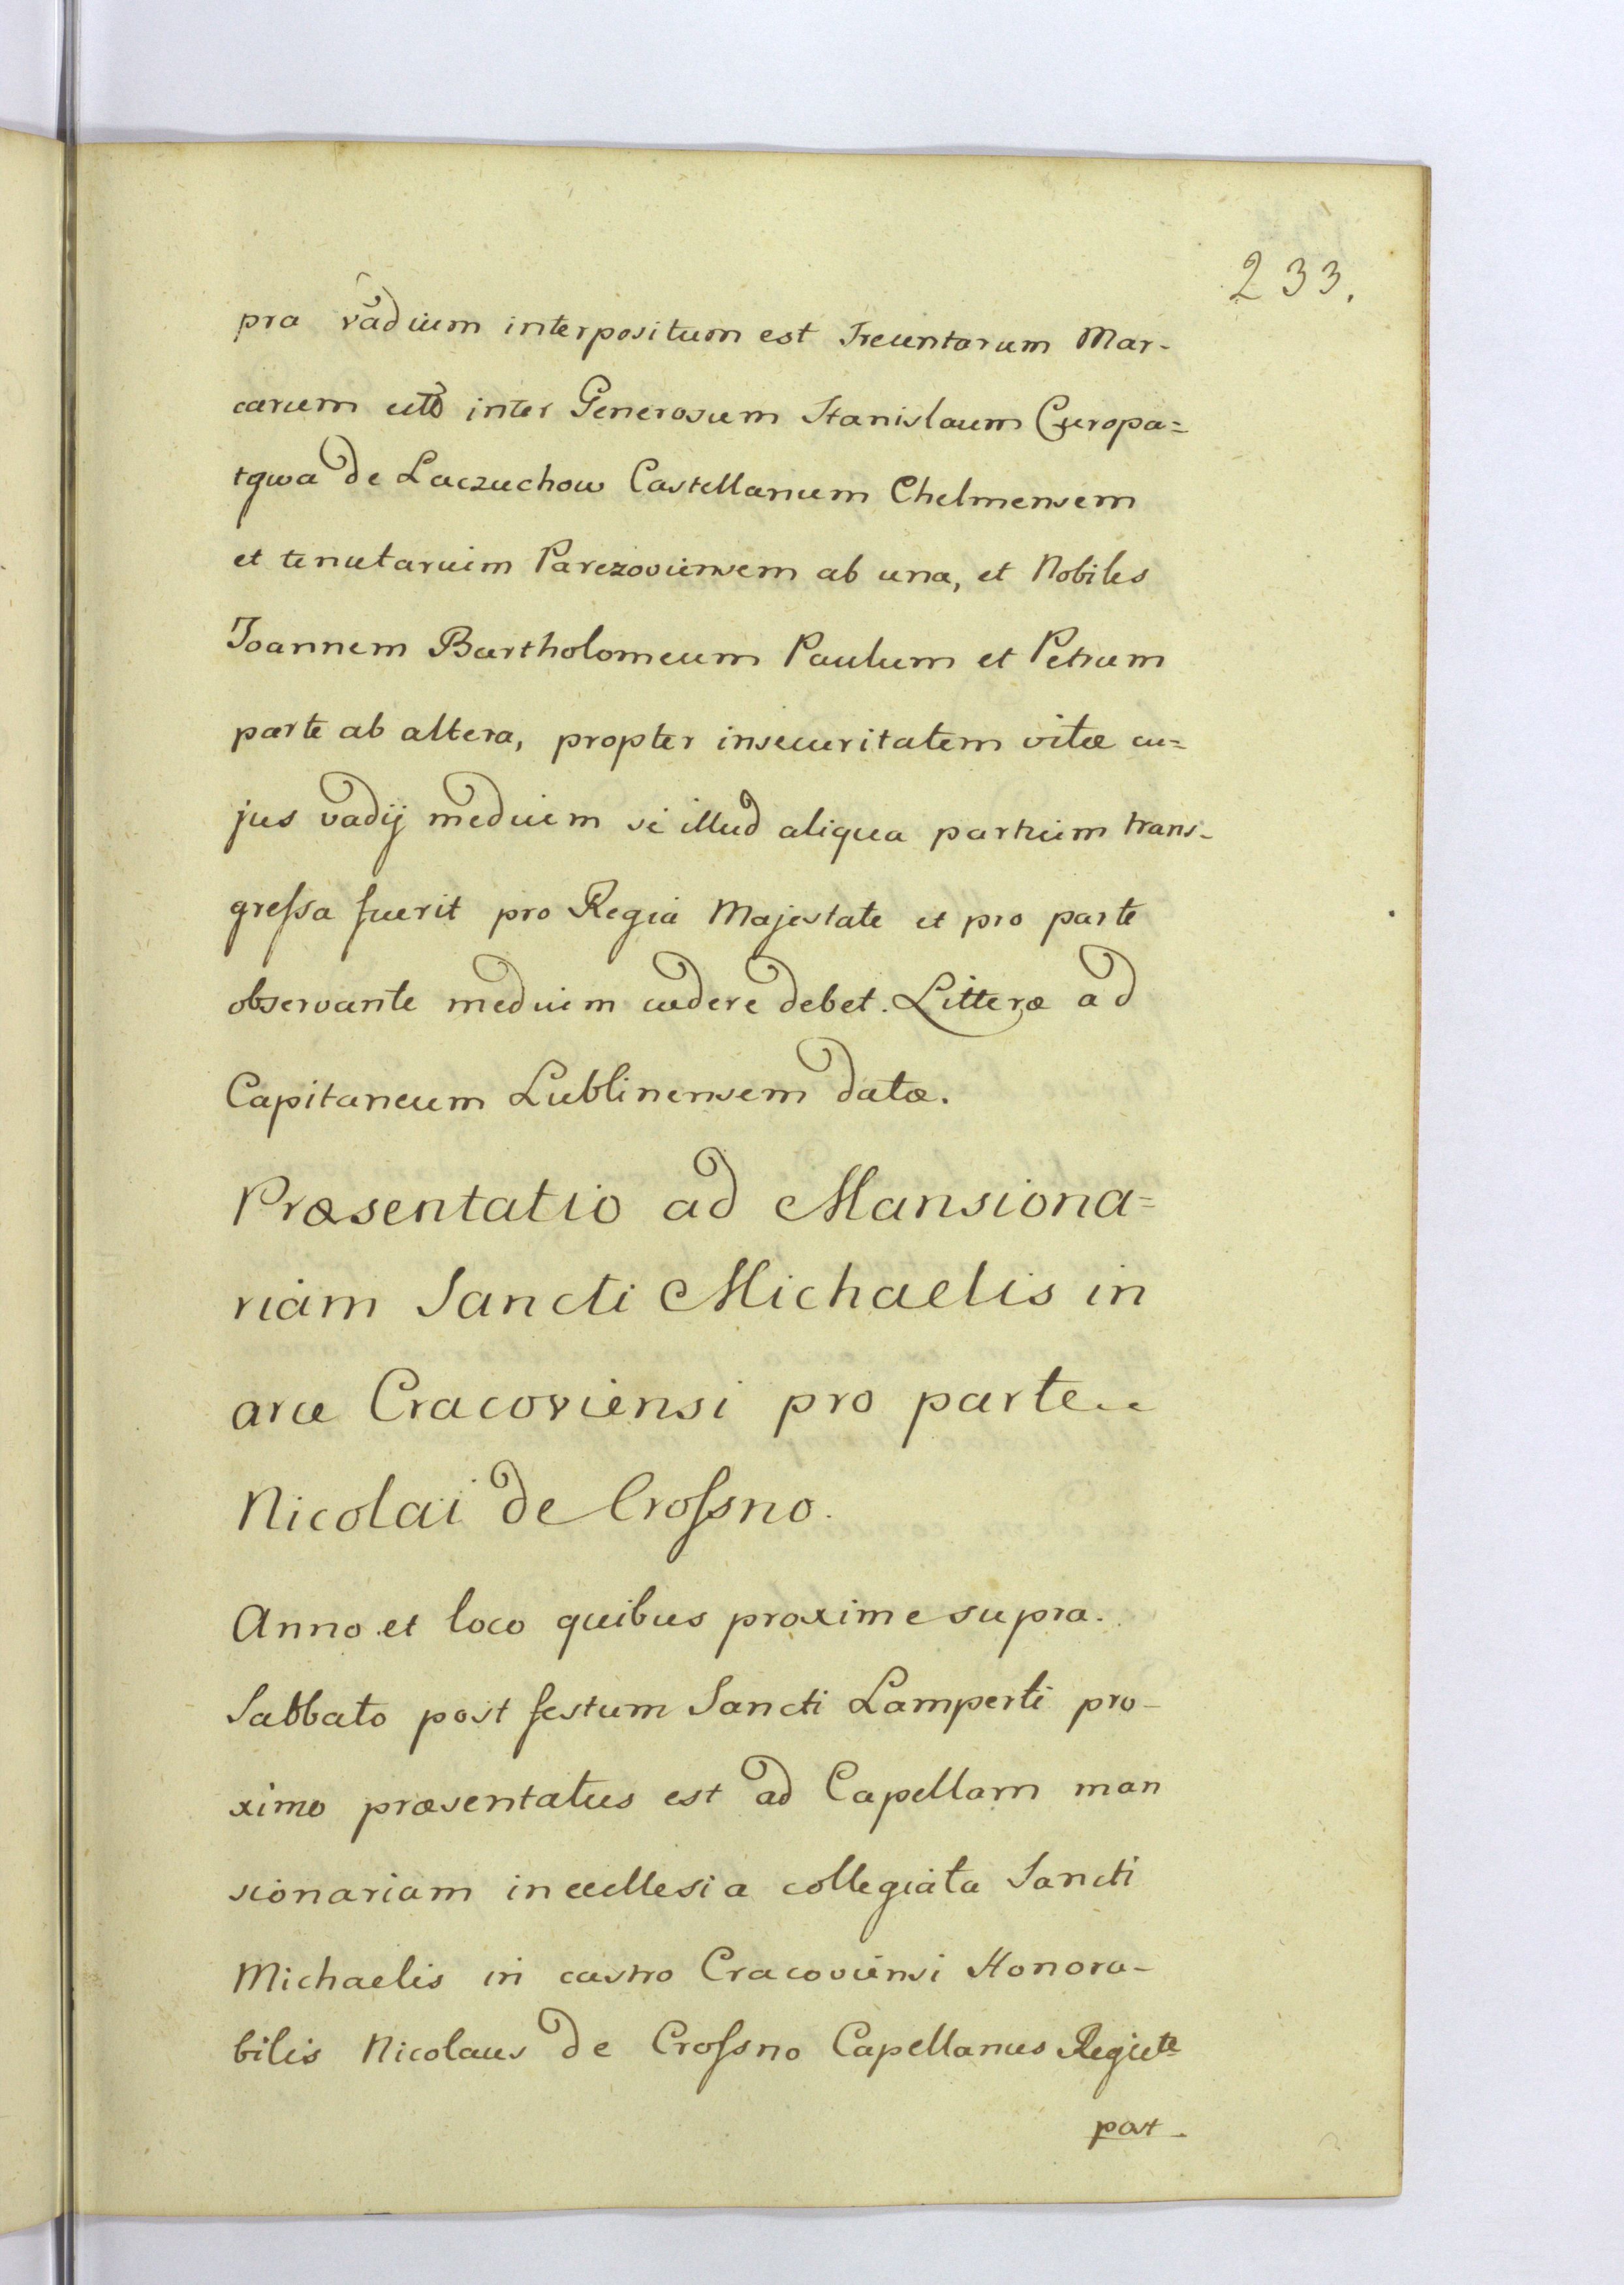 233.
pra vadium interpositum est Trecentarum Mar-
carum inter Generosum Stanislaum Curopa=
tqwa de Laczuchow Castellanum Chelmensem
et tenutarium Parczoviensem ab una, et Nobiles
Joannem Bartholomeum Paulum et Petrum
parte ab altera, propter insecuritatem vitæ cu=
jus vadij medium si illud aliqua partium trans-
greſsa fuerit pro Regia Majestate et pro parte
observante medium cedere debet. Litteræ ad
Capitaneum Lublinensem datæ.
Præsentatio ad Mansiona=
riam Sancti Michaelis in
arce Cracoviensi pro parte
Nicolai de Croſsno.
Anno et loco quibus proxime supra.
Sabbato post festum Sancti Lamperti pro-
ximo præsentatus est ad Capellam man
sionariam in ecclesia collegiata Sancti
Michaelis in castro Cracoviensi Honora-
bilis Nicolaus de Croſsno Capellanus
post